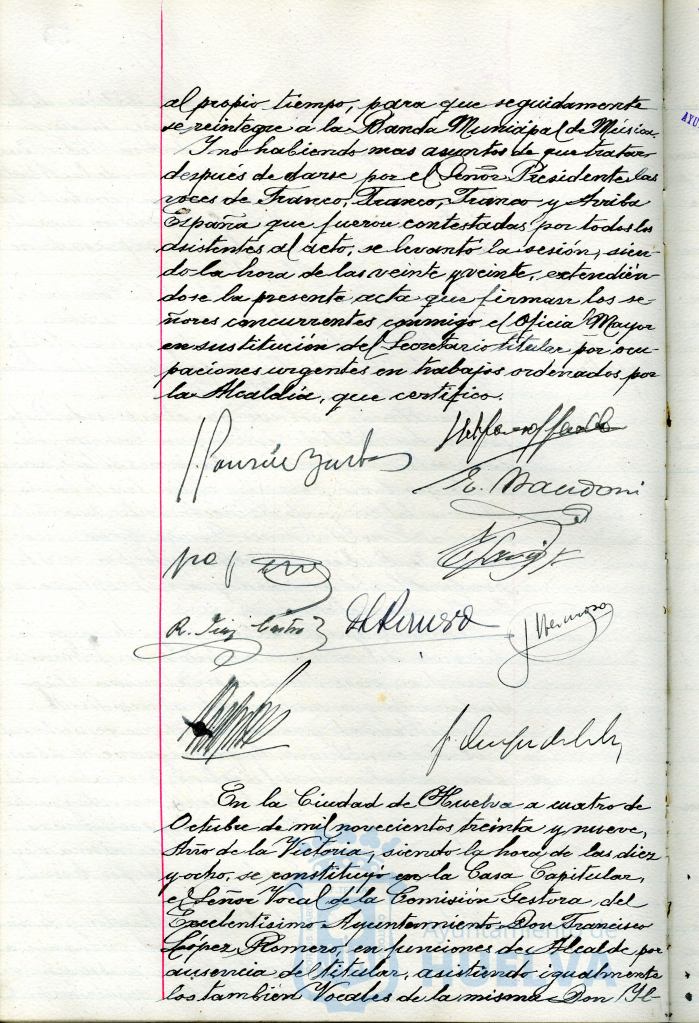 al propio tiempo, para que seguidamente
se reintegre a la Banda Municipal de Música.
Y no habiendo mas asuntos de que tratar
después de darse por el Señor Presidente las
voces de Franco, Franco, Franco y Arriba
España que fueron contestadas por todos los
asistentes al acto, se levantó la sesión, sien-
do la hora de las veinte y veinte, extendién-
dose la presente acta que firman los se-
ñores concurrentes conmigo el Oficial Mayor
en sustitución del Secretario titular por ocu-
paciones urgentes en trabajos ordenados por
la Alcaldía, que certifico.
E. Mandoni
R. Díaz Castro
J. Hermoso
En la Ciudad de Huelva a cuatro de
Octubre de mil novecientos treinta y nueve,
Año de la Victoria, siendo la hora de las diez
y ocho, se constituyó en la Casa Capitular,
el Señor Vocal de la Comisión Gestora, del
Excelentísimo Ayuntamiento Don Francisco
López Romero, en funciones de Alcalde por
ausencia del titular, asistiendo igualmente
los también Vocales de la misma Don Il-
Ayuntamiento de
HUELVA
AYU